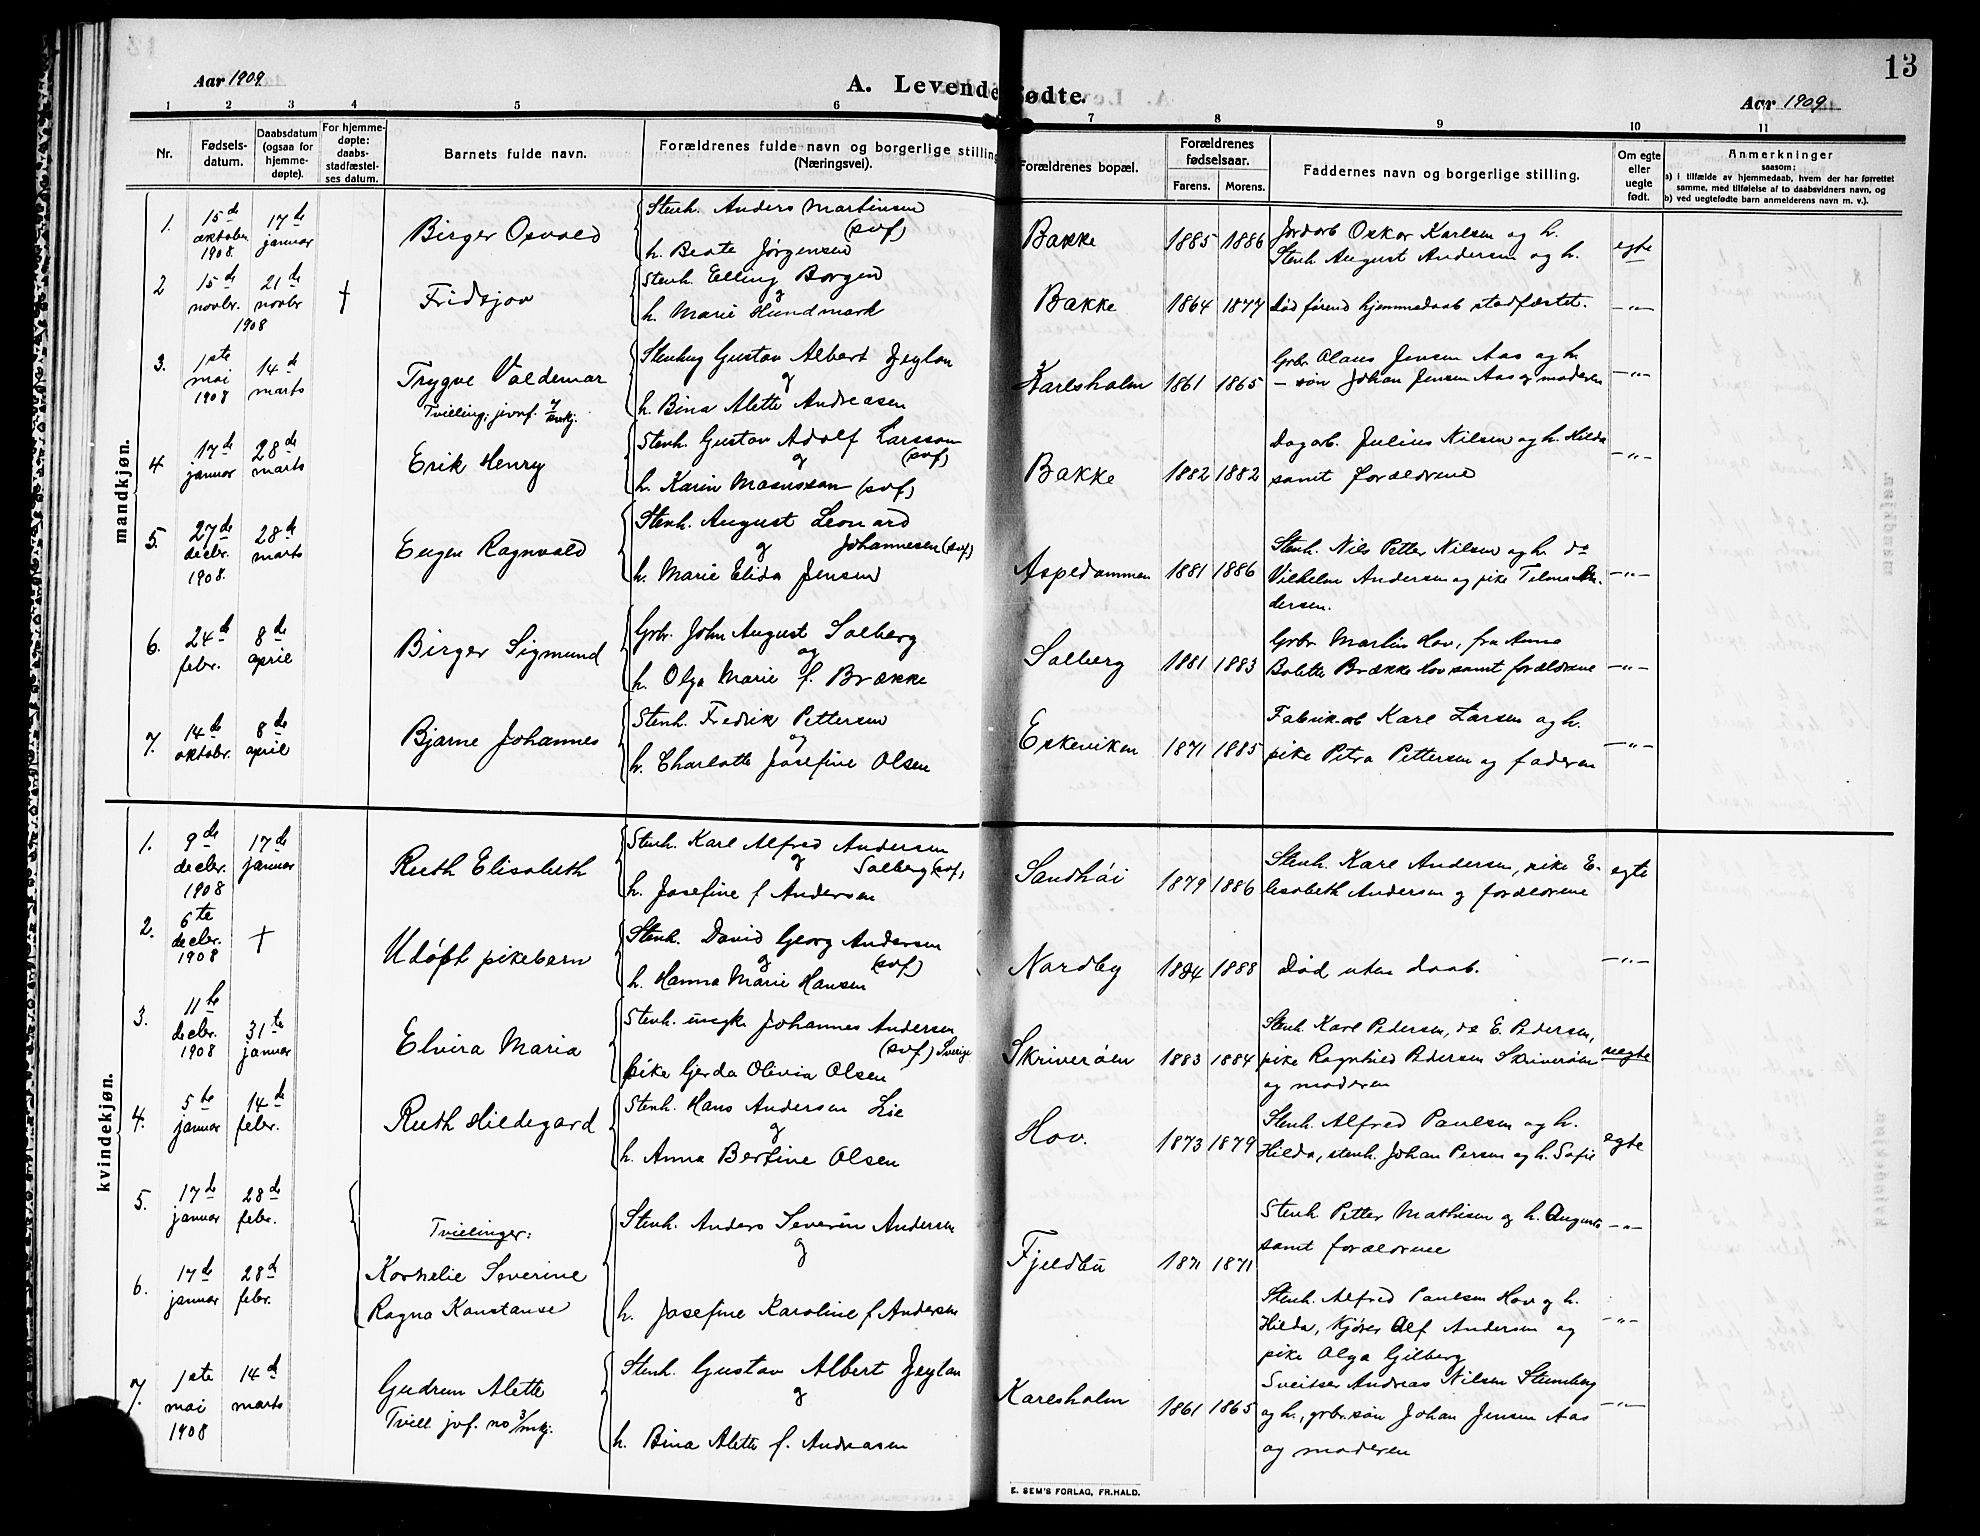 13
Aar 1909
A. Levende fødte.
Aar 1909
1 2 3 4 5 6 7 8 9 10 11
Nr.
Fødsels-
datum.
Daabsdatum
(ogsaa for
hjemme-
døpte).
For hjemme-
døpte:
daabs-
stadfæstel-
ses datum.
Barnets fulde navn.
Forældrenes fulde navn og borgerlige stilling
(Næringsvei).
Forældrenes bopæl.
Forældrenes
fødselsaar.
Farens. Morens.
Faddernes navn og borgerlige stilling.
Om egte
eller
uegte
født.
Anmerkninger
saasom:
a) i tilfælde av hjemmedaab, hvem der har forrettet
samme, med tilføielse af to daabsvidners navn, og
b) ved uegtefødte barn anmelderens navn m. v.).
mandkjøn.
1. 15de oktober 1908. 17de januar
Birger Osvald
Stenh. Anders Martinsen
(svf)
h. Beate Jørgensen
Bakke 1885 1886
Jordarb Oskar Karlsen og h.
Stenh August Andersen og h.
egte
2 15de novbr. 21de novbr 1908 †
Fridsjov
Stenh. Elling Borgen
og
h. Marie Hundmark
Bakke 1864 1877
Død førend hjemmedaab stadfæstet.
—"—
3. 1ste mai 1908 14de marts
Trygve Valdemar
Tvilling; jvnf. 7/kvkj.
Stenhug Gustav Albert Jeylan
og
h. Bina Alette Andreasen
Karlsholm 1861 1865
Grbr. Olaus Jensen Aas og h.
— søn Johan Jensen Aas og moderen
—"—
4 17de januar 28de marts
Erik Henry
Stenh. Gustav Adolf Larsson
og (svf)
h. Karin Magnusson (svf)
Bakke 1882 1882
Dagarb. Julius Nilsen og h. Hilda
samt forældrene
—"—
5. 27de decbr. 1908. 28de marts
Eugen Ragnvald
Stenh. August Leonard
og Johannesen (svf)
h. Marie Elida Jensen
Aspedammen 1881 1886
Stenh. Nils Petter Nilsen og h. do
Vilhelm Andersen og pike Telma An-
dersen.
—"—
6. 24de febr. 8de april
Birger Sigmund
Grbr. John August Solberg
og
h. Olga Marie f. Brække
Solberg 1881 1883
Grbr Martin Hov, fru Anna
Bolette Brække Hov samt forældrene
—"—
7. 14de oktobr. 8de april
Bjarne Johannes
Stenh. Fredrik Pettersen
og
h. Charlotte Josefine Olsen
Eskeviken 1871 1885
Fabrik.arb Karl Larsen og h.
pike Petra Pettersen og faderen
—"—
kvindekjøn.
1. 9de decbr. 1908 17de januar
Ruth Elisabeth
Stenh. Karl Alfred Andersen
og Solberg (svf)
h. Josefine f Andersen
Sandhøi 1879 1886
Stenh. Karl Andersen, pike E-
lisabeth Andersen og forældrene
egte
2. 6te decbr. 1908 †
Udøpt pikebarn
Stenh. David Georg Andersen
og (svf)
h. Hanna Marie Hansen
Nordby 1884 1888
Død uten daab.
—"—
3. 11te decbr. 1908 31te januar
Elvira Maria
Stenh. ungk. Johannes Andersen
(svf) Sverige
pike Gjerda Olivia Olsen
Skriverøen 1883 1884
Stenh. Karl Pedersen, do E. Pedersen,
pike Ragnhild Pedersen Skriverøen
og moderen
uegte
4. 5te januar 14de febr.
Ruth Hildegard
Stenh. Hans Andersen Lie
og
h. Anna Bertine Olsen
Hov. 1873 1879
Stenh. Alfred Paulsen og h.
Hilda, stenh. Johan Persen og h. Sofie
egte
5. 17de januar 28de febr.
Tvillinger:
Kornelie Severine
Stenh. Anders Severin Andersen
og
h. Josefine Karoline f. Andersen
Fjeldbu 1871 1871
Stenh. Petter Mathisen og h. Augusta
samt forældrene
—"—
6. 17de januar 28de febr.
Ragna Konstanse
Stenh. Alfred Paulsen Hov og h.
Hilda, kjører Alf Andersen og
pike Olga Gilberg
—"—
7. 1ste mai 1908 14de marts
Gudrun Alette
Tvill. jvf. no 3/mkj.
Stenh. Gustav Albert Jeylan
og
h. Bina Alette f. Andreasen
Karlsholm 1861 1865
Sveitser Andreas Nilsen Stumberg
og h., grbr.søn Johan Jensen Aas
og moderen
—"—
E. SEM'S FORLAG, FR.HALD.